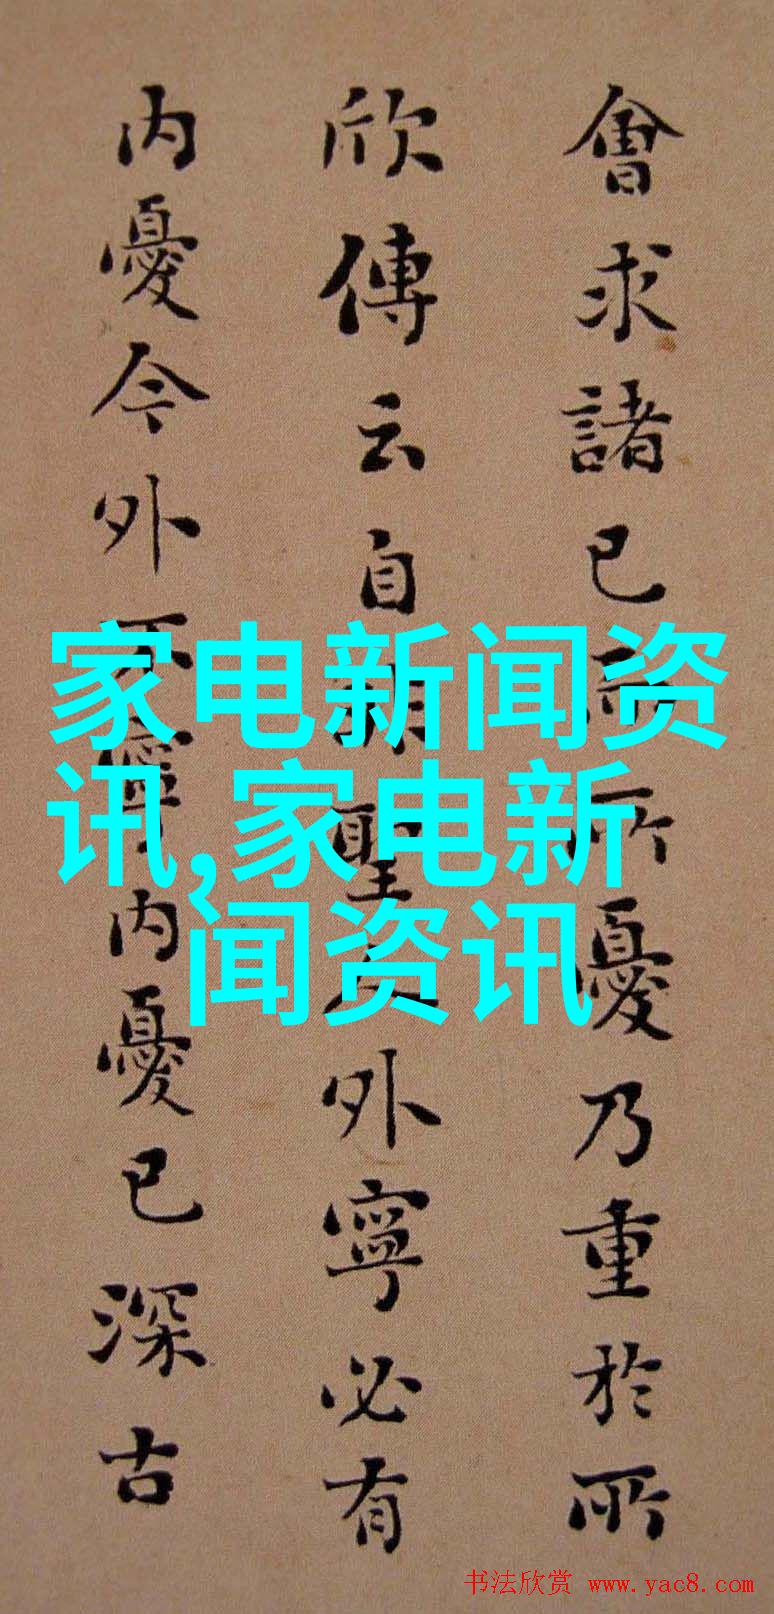 會求諸已所憂乃重於所
欣傳云自聖人外寧必有
內憂今外不寧內憂已深古
家电新闻资
讯,家电新
闻资讯
书法欣赏 www.yac8.com